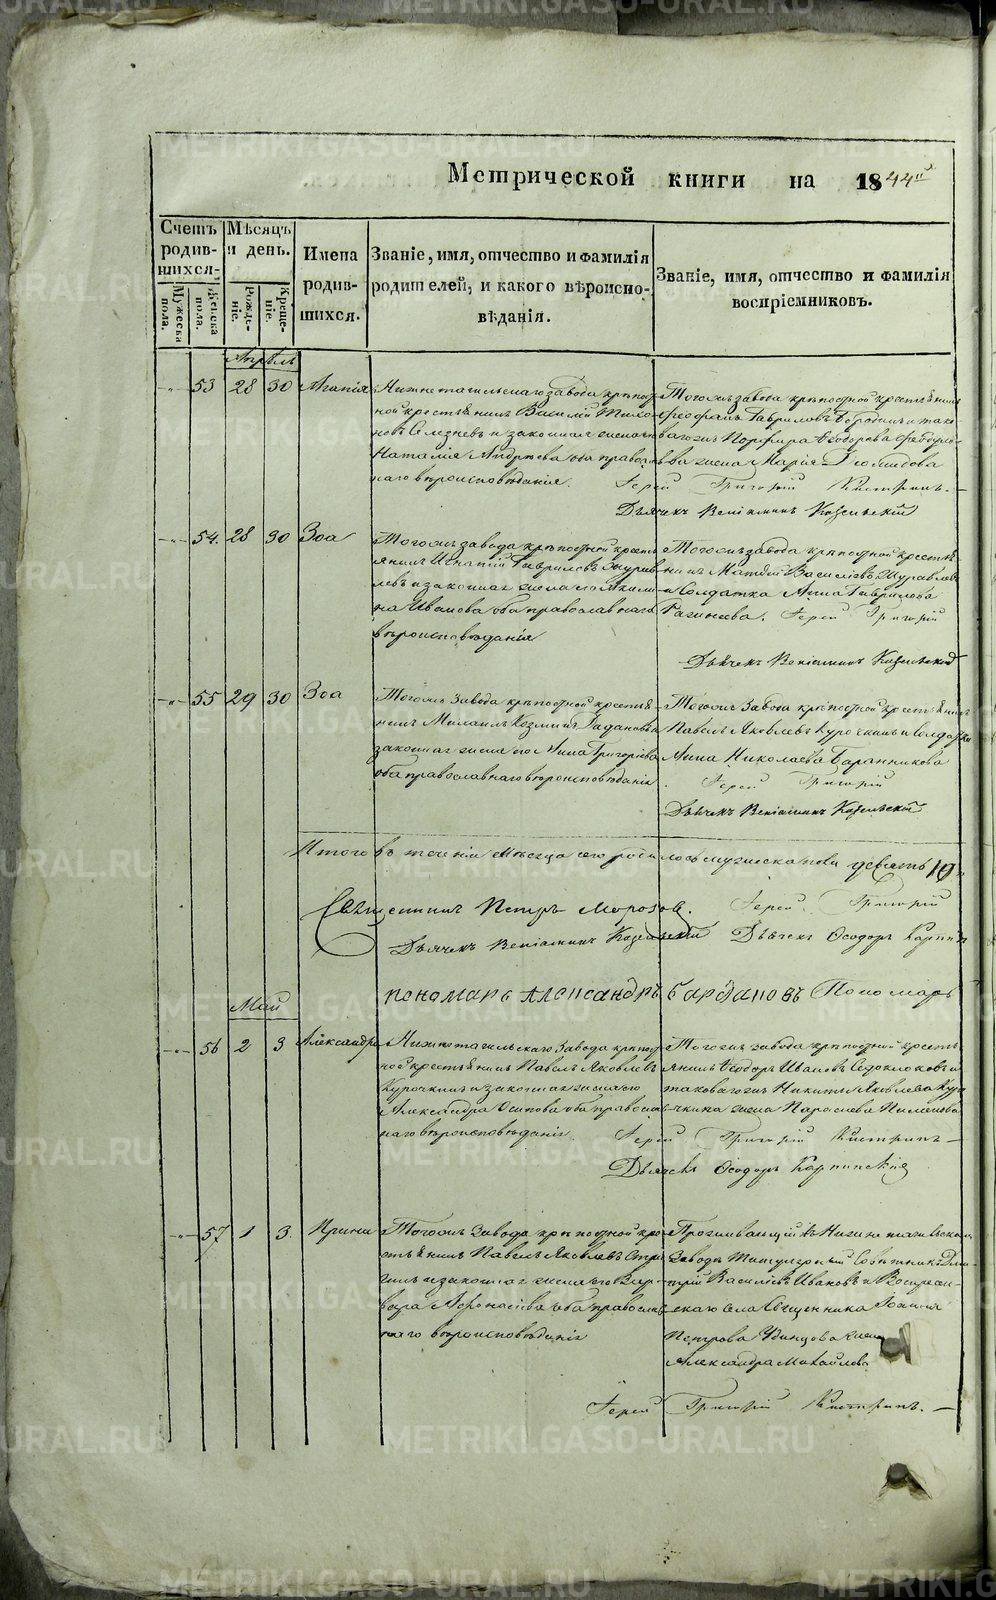 Метрической книги на 1844й
Счетъ родившихся.
Мѣсяцъ и день.
Имена родившихся.
Званіе, имя, отчество и фамилія родителей, и какого вѣроисповѣданія.
Званіе, имя, отчество и фамилія воспріемниковъ.
Мужеска пола.
Женска пола.
Рожденіе.
Крещеніе.
Апрѣль
53 28 30 Агапія
Нижнетагильскаго завода крѣпост-
ной крестьянинъ Василій Тихо-
новъ Селезневъ и законная жена его
Наталія Андреева оба православ-
наго вѣроисповѣданія.
Тогожъ завода крѣпостной крестьянинъ
Феофанъ Гавриловъ Бородинъ и тако-
вагожъ Порфира Феодорова
ва жена Марія Діомидова
Іерей Григорій Кистринъ.
Дьячекъ Веніаминъ Козельскій
54. 28 30 Зоа
Тогожъ завода крѣпостной кресть-
янинъ Игнатій Гавриловъ Журав-
левъ и законная жена его Акили-
на Иванова оба православнаго
вѣроисповѣданія
Тогожъ завода крѣпостной крестья-
нинъ Матвей Васильевъ Журавлевъ
и Солдатка Анна Гаврилова
Іерей Григорій
Дьячекъ Веніаминъ Козельскій
55 29 30 Зоа
Тогожъ завода крѣпостной крестья-
нинъ Михаилъ Козминъ
законная жена его Анна Григорьева
оба православнаго вѣроисповѣданія
Тогожъ завода крѣпостной крестьянинъ
Павелъ Яковлевъ Курочкинъ и солдатка
Анна Николаева Баранникова
Іерей Григорій
Дьячекъ Веніаминъ Козельскій
Итого въ теченіи Мѣсяца сего родилось мужеска пола девять 19
Священникъ Петръ Морозовъ. Іерей Григорій
Дьячекъ Веніаминъ Козельскій Дьячекъ Ѳеодоръ Карпинск
пономарь Александръ Бардановъ Пономарь
Май
56 2 3 Александра
Нижнетагильскаго завода крѣпост-
ной крестьянинъ Павелъ Яковлевъ
Курочкинъ и законная жена его
Александра Осипова оба православ-
наго вѣроисповѣданія.
Тогожъ завода крѣпостной кресть-
янинъ Феодоръ Ивановъ и
таковагожъ Никиты Яковлева Куро-
чкина жена Парасева Пименова
Іерей Григорій Кистринъ
Дьячекъ Ѳеодоръ Карпинскій
57 1 3. Ирина
Тогожъ завода крѣпостной кре-
стьянинъ Павелъ Яковлевъ
и законная жена его Вар-
вара Афонасіева оба православ-
наго вѣроисповѣданія
Проживающій въ Нижнетагильскомъ
Заводѣ Титулярный Совѣтникъ Дми-
трій Васильевъ Ивановъ и Воскресен-
скаго села Священника Іоанна
Петрова Удинцова жена
Александра Михайлова
Іерей Григорій Кистринъ.
METRIKI.GASO-URAL.RU